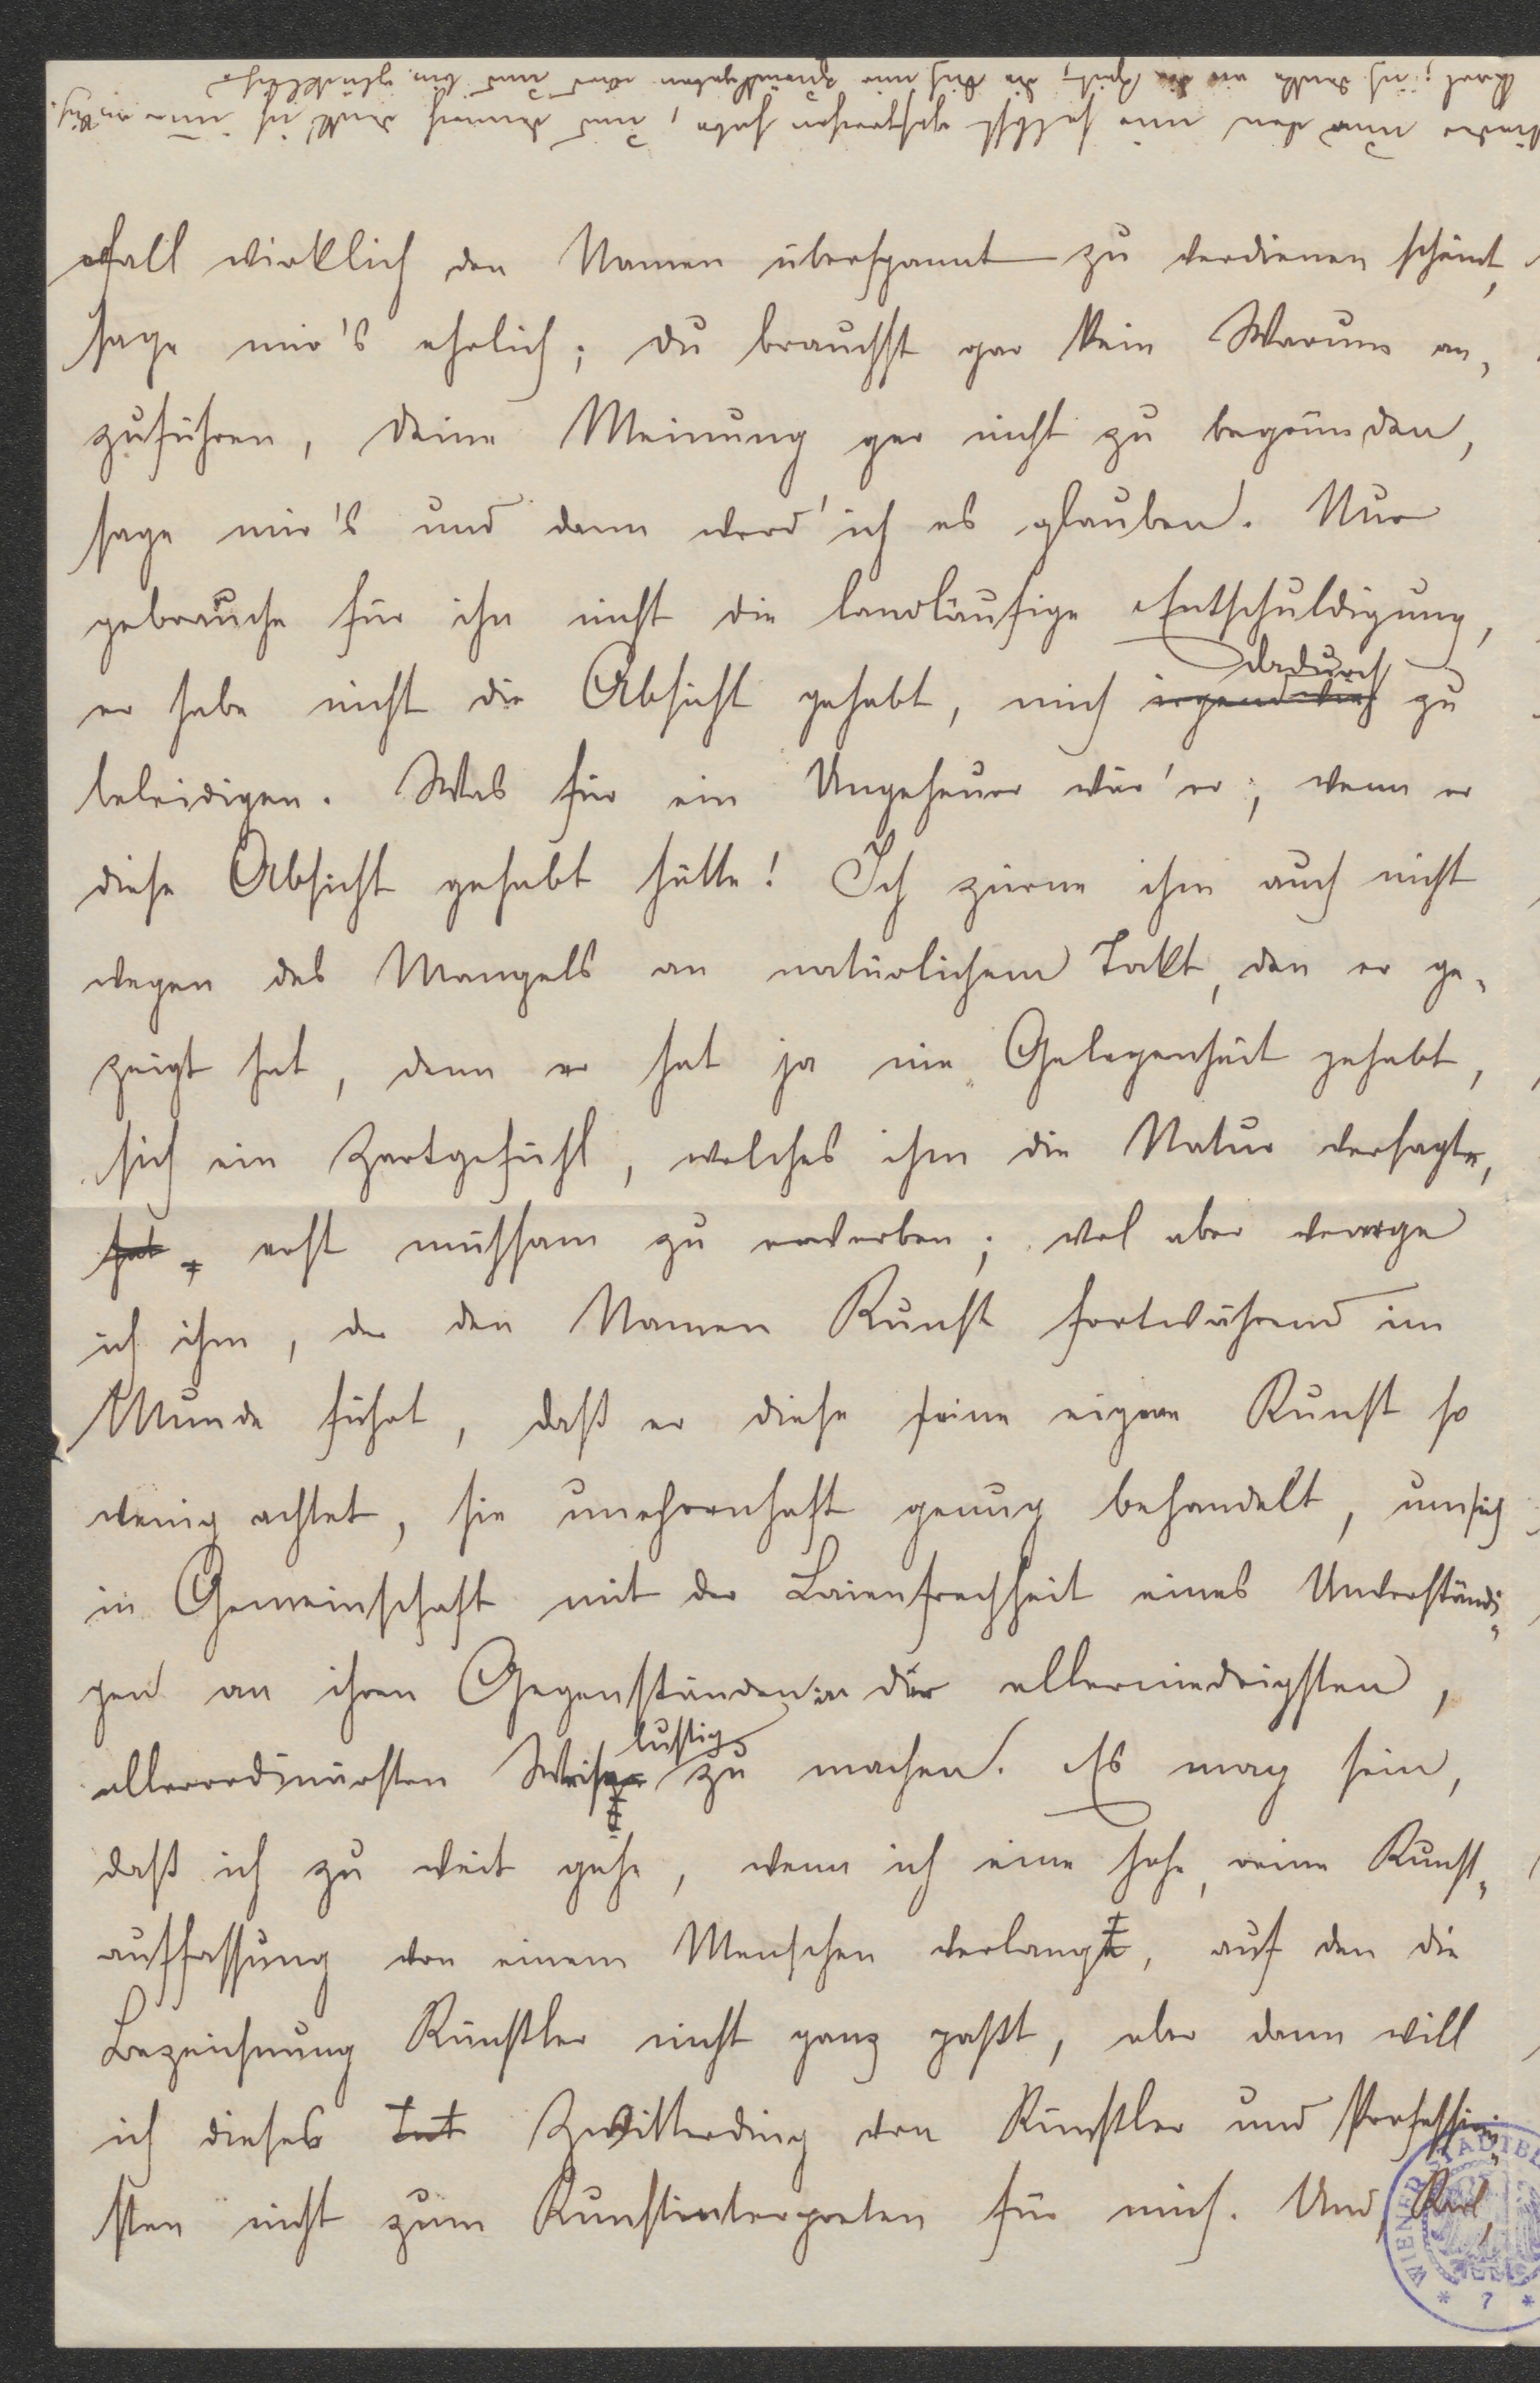 wieder nur von mir selbst gesprochen habe, und dennoch denk' ich immer an Dich,
Karl; ich denke an die Zeit, die Dich mir zurückgeben wird und bin glücklich.
fall wirklich den Namen überspannt zu verdienen scheint,
sage mir's ehrlich; du brauchst gar kein Warum an„
zuführen, deine Meinung gar nicht zu begründen,
sage mir's und dann werd' ich es glauben. Nur
gebrauche für ihn nicht die landläufige Entschuldigung,
er habe nicht die Absicht gehabt, mich dadurch zu
beleidigen. Was für ein Ungeheuer wär' er, wenn er
diese Absicht gehabt hätte! Ich zürne ihm auch nicht
wegen des Mangels an natürlichem Takt, den er ge„
zeigt hat, denn er hat ja nie Gelegenheit gehabt,
sich ein Zartgefühl, welches ihm die Natur versagte,
hat erst mühsam zu erwerben; wol aber verarge
ich ihm, der den Namen Kunst fortwährend im
Munde führt, daß er diese seine eigene Kunst so
wenig achtet, sie unehrenhaft genug behandelt, um sich
in Gemeinschaft mit der Laienfrechheit eines Unverständi„
gen an ihren Gegenständen in der allerniedrigsten,
allerordinärsten Weise lustig zu machen. Es mag sein,
daß ich zu weit gehe, wenn ich eine hohe, reine Kunst„
auffassung von einem Menschen verlangte, auf den die
Bezeichnung Künstler nicht ganz paßt, aber dann will
ich dieses Zwitterding von Künstler und Professioni„
sten nicht zum Kunstinterpreten für mich. Und, Karl,
WIENER STADTBI
* 7 *